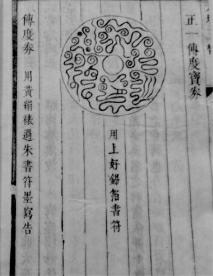 正一傳度寶券
用上好書符
傳度券 用黃絹裱過朱書符墨寫告